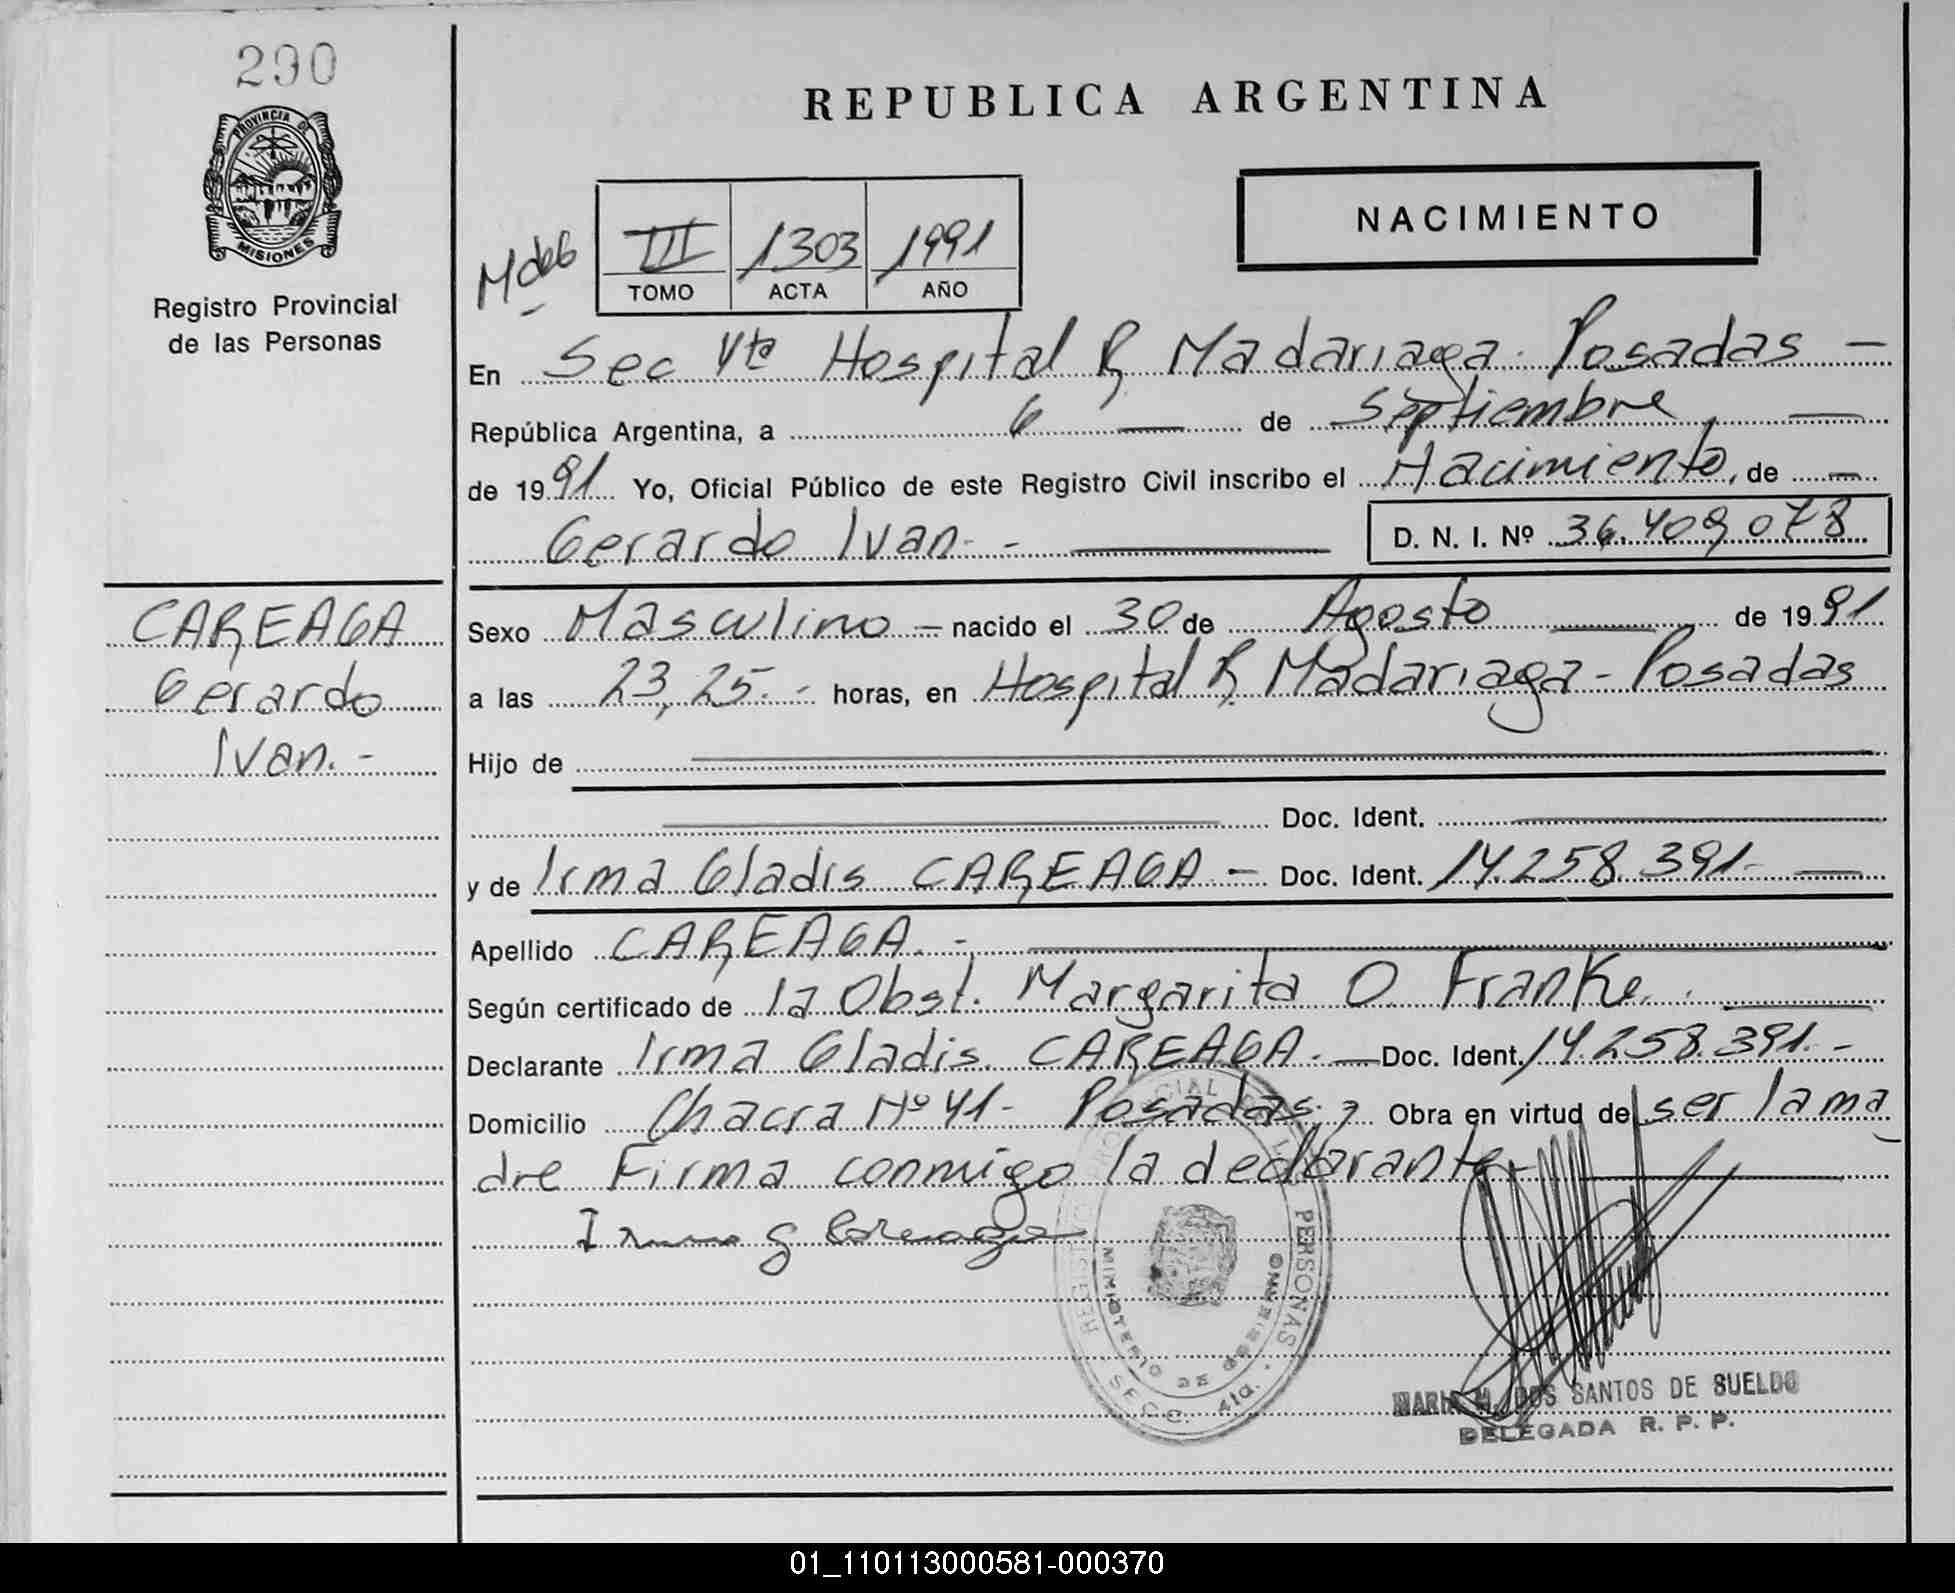 290
PROVINCIA DE
MISIONES
Registro Provincial
de las Personas
REPUBLICA ARGENTINA
NACIMIENTO
III 1303 1991
TOMO ACTA AÑO
En Sec 4ta Hospital R. Madariaga. Posadas —
República Argentina, a 6 — de Septiembre —
de 1991 Yo, Oficial Público de este Registro Civil inscribo el Nacimiento, de —
Gerardo Ivan.- — D. N. I. Nº 36.409.078
CAREAGA
Gerardo
Ivan.-
Sexo Masculino — nacido el 30 de Agosto — de 1991
a las 23,25.- horas, en Hospital R. Madariaga - Posadas
Hijo de —
— Doc. Ident. —
y de Irma Gladis CAREAGA — Doc. Ident. 14.258.391- —
Apellido CAREAGA.- —
Según certificado de la Obst. Margarita O. Franke. —
Declarante Irma Gladis CAREAGA. — Doc. Ident. 14.258.391.-
Domicilio Chacra Nº 41- Posadas.; Obra en virtud de ser la ma
dre Firma conmigo la declarante- —
Irma G Careaga
PERSONAS
MINISTERIO DE GOBIERNO
SECC. 4ta.
MARIA M. DOS SANTOS DE SUELDO
DELEGADA R. P. P.
01_110113000581-000370